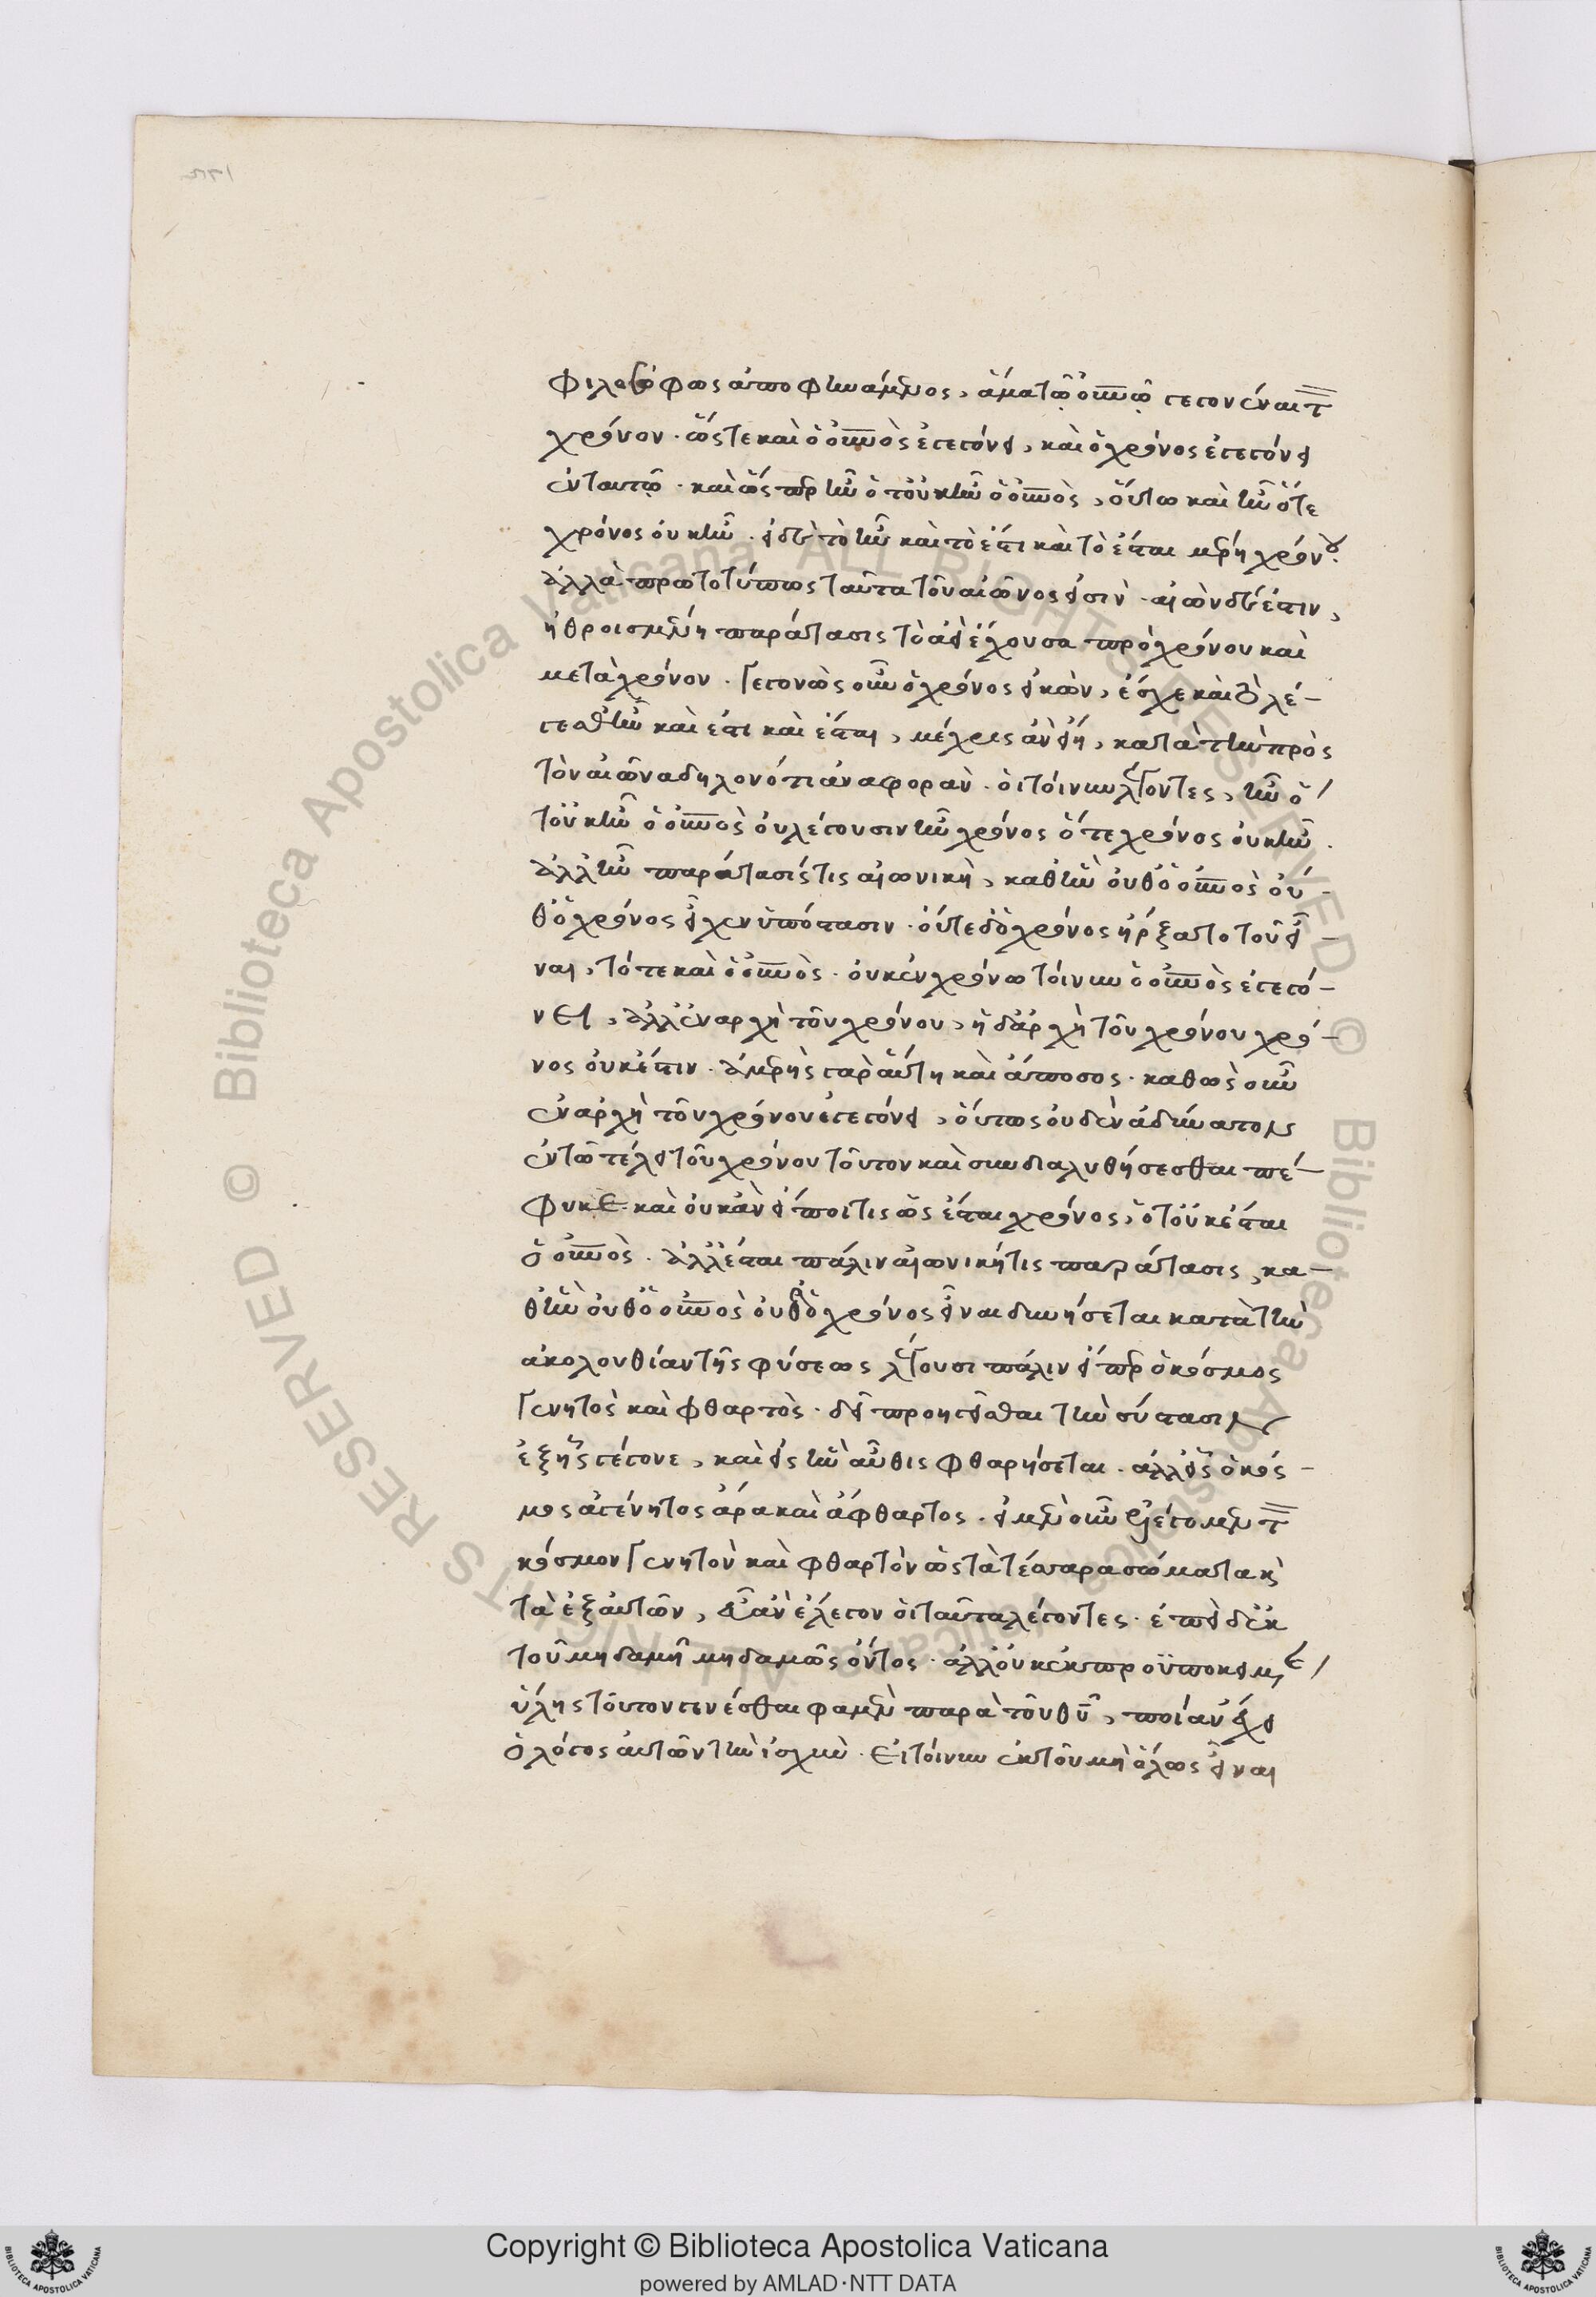 φιλοσόφως ἀποφηνάμενος, ἅμα τῶ οὐνῶ γεγονέναι τ
χρόνον. ὥστε καὶ ὁ οὐνὸς ἐγεγόνει, καὶ ὁ χρόνος ἐγεγόνει
ἐν ταυτῶ. καὶ ὥσπερ ἦν ὅτ' οὐκ ἦν ὁ οὐνὸς, οὕτω καὶ ἦν ὅτε
χρόνος οὐκ ἦν. εἰ δὲ τὸ ἦν καὶ τὸ ἔστι καὶ τὸ ἔσται μέρη χρόνου.
ἀλλὰ πρωτοτύπως ταῦτα τοῦ αἰῶνος εἰσιν. αἰὼν δὲ ἐστιν,
ἠθροισμένη παράτασις τὸ ἀεὶ ἔχουσα πρὸ χρόνου καὶ
μετὰ χρόνον. γεγονὼς οὖν ὁ χρόνος εἰκὼν, ἔσχε καὶ τὸ λέ-
γεσθαι ἦν καὶ ἔστι καὶ ἔσται, μέχρις ἂν εἴη, κατὰ τὴν πρὸς
τὸν αἰῶνα δηλονότι ἀναφορὰν. οἱ τοίνυν λέγοντες, ἦν ὅ
τ' οὐκ ἦν ὁ οὐνὸς οὐ λέγουσιν ἦν χρόνος ὅτε χρόνος οὐκ ἦν.
ἀλλ' ἦν παράτασίς τις αἰωνικὴ, καθ' ἣν οὐθ' ὁ οὐνὸς οὐ-
θ' ὁ χρόνος εἶχεν ὑπόστασιν. ὅτε δ' ὁ χρόνος ἤρξατο τοῦ εἶ-
ναι, τότε καὶ ὁ οὐνὸς. οὐκ ἐν χρόνω τοίνυν ὁ οὐνὸς ἐγεγό-
νει, ἀλλ' ἐν ἀρχῆ τοῦ χρόνου, ἡ δ' ἀρχὴ τοῦ χρόνου χρό-
νος οὐκ ἔστιν. ἀμερὴς γὰρ αὕτη καὶ ἄποσος. καθὼς οὖν
ἐν ἀρχῆ τοῦ χρόνου ἐγεγόνει, οὕτως οὐδὲν ἀδύνατον
ἐν τῶ τέλει τοῦ χρόνου τοῦτον καὶ συνδιαλυθήσεσθαι πέ-
φυκε. καὶ οὐκ ἂν εἴποι τις ὡς ἔσται χρόνος, ὅτ' οὐκ ἔσται
ὁ οὐνὸς. ἀλλ' ἔσται πάλιν αἰωνική τις παράτασις, κα-
θ' ἣν οὐθ' ὁ οὐνὸς οὐθ' ὁ χρόνος εἶναι δυνήσεται κατὰ τὴν
ἀκολουθίαν τῆς φύσεως λέγουσι πάλιν εἴπερ ὁ κόσμος
γενητὸς καὶ φθαρτὸς. δεῖ προηγεῖσθαι τὴν σύστασιν
ἐξ ἧς γέγονε, καὶ εἰς ἣν αὖθις φθαρήσεται. ἀλλ' εἷς ὁ κόσ-
μος ἀγένητος ἄρα καὶ ἄφθαρτος. εἰ μὲν οὖν ἐλέγομεν τ
κόσμον γενητὸν καὶ φθαρτὸν ὡς τὰ τέσσαρα σώματα κὶ
τὰ ἐξ αὐτῶν, εὖ ἂν ἔλεγον οἱ ταῦτα λέγοντες. ἐπεὶ δ' ἐκ
τοῦ μηδαμῆ μηδαμῶς ὄντος. ἀλλ' οὐκ ἐκ προϋποκειμε
ὕλης τοῦτον γενέσθαι φαμὲν παρὰ τοῦ θῦ, ποίαν ἔχει
ὁ λόγος αὐτῶν τὴν ἰσχὺν. εἰ τοίνυν ἐκ τοῦ μὴ ὅλως εἶναι